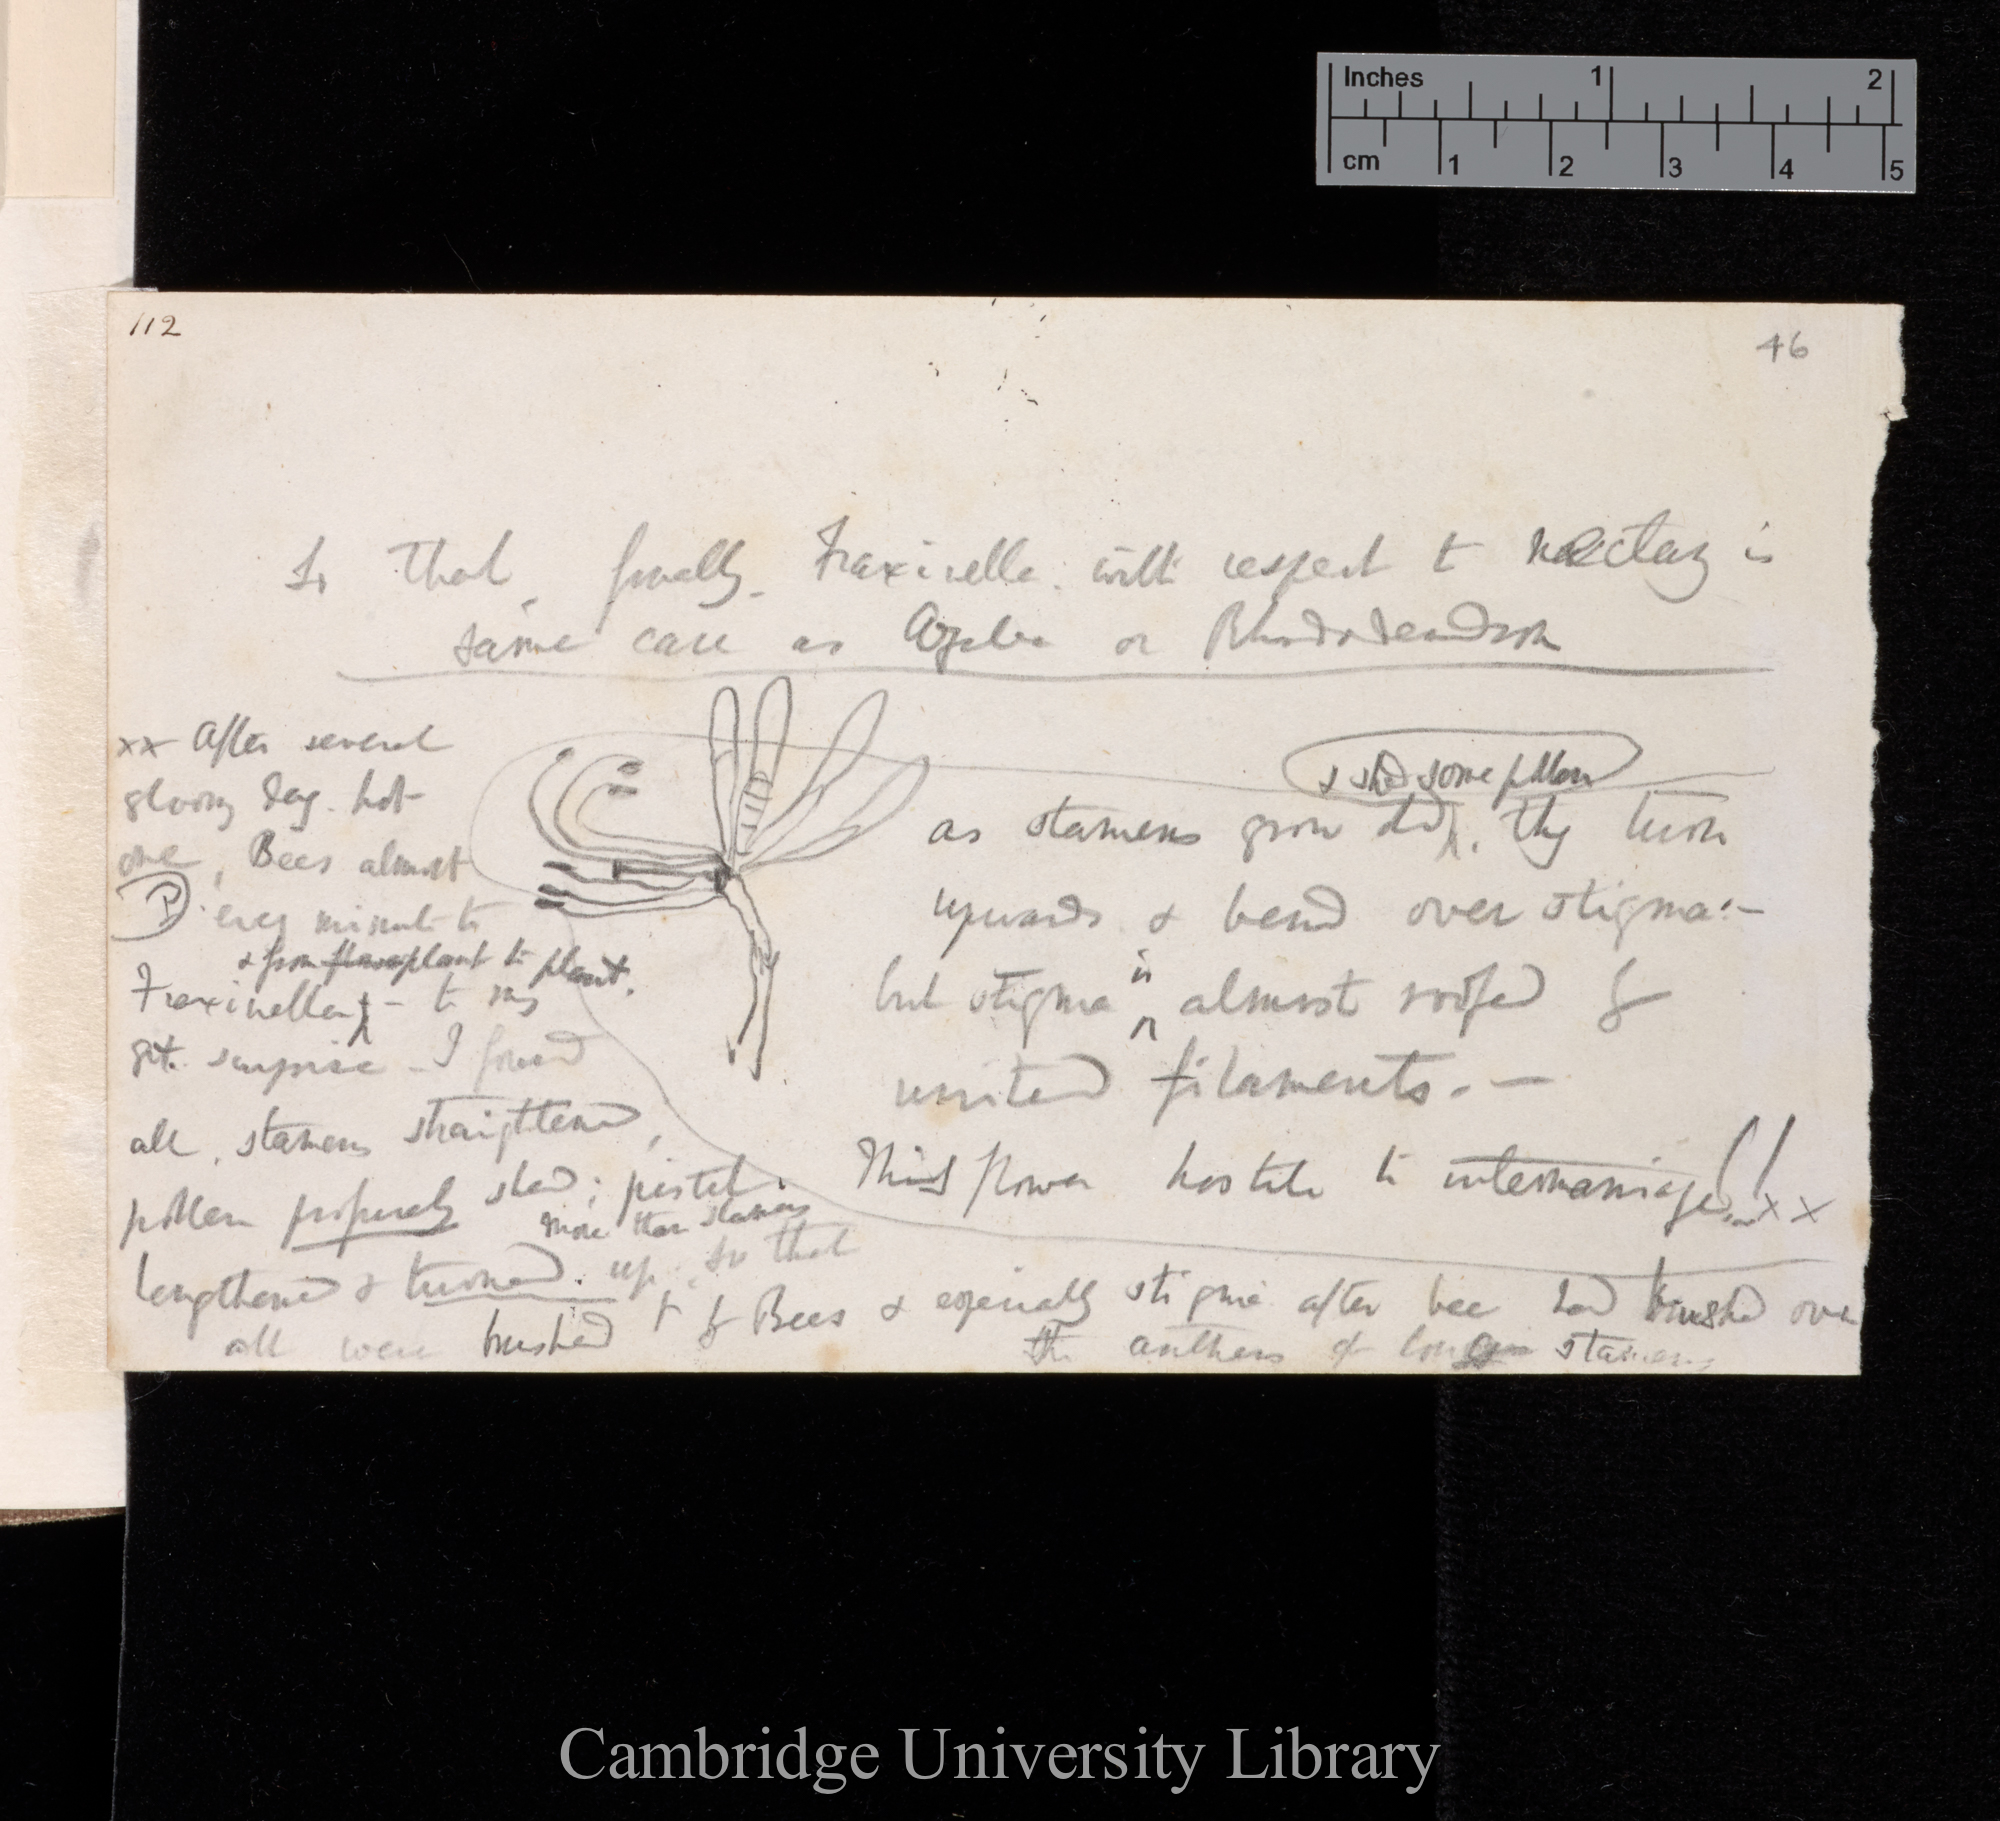 Inches 1 2
cm 1 2 3 4 5
112
46
So that, finally, Fraxinella. with respect to nectary is
same case as Azalea or Rhododendron
& shed some pollen
as stamens grow old, they turn
upwards & bend over stigma:—
but stigma is almost roofed by
united filaments. —
This flower hostile to intermarriage!! xx
xx After several
gloomy day. hot
one, Bees almost
every minute to
& from flower plant to plant.
Fraxinella, — to my
gt. surprise — I found
all stamens straightened,
pollen properly shed; pistil
more than stamens
lengthened & turned up, so that
all were brushed by Bees & especially stigma after bee had brushed over
the anthers of longer stamens
Cambridge University Library